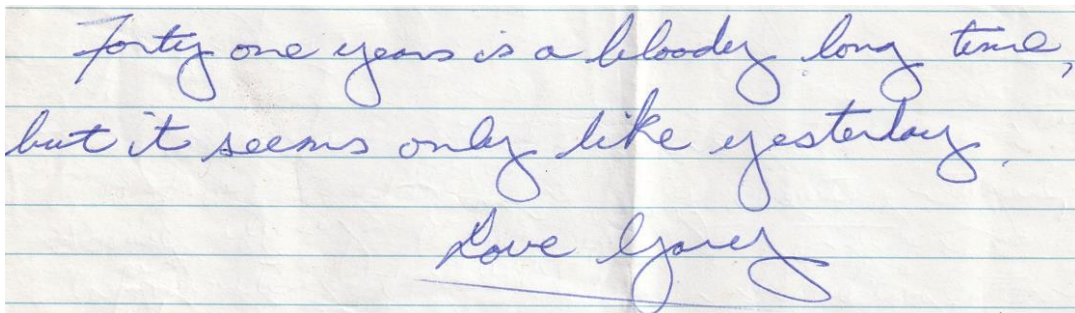 Forty one years is a bloody long time,
but it seems only like yesterday.
Love Garey